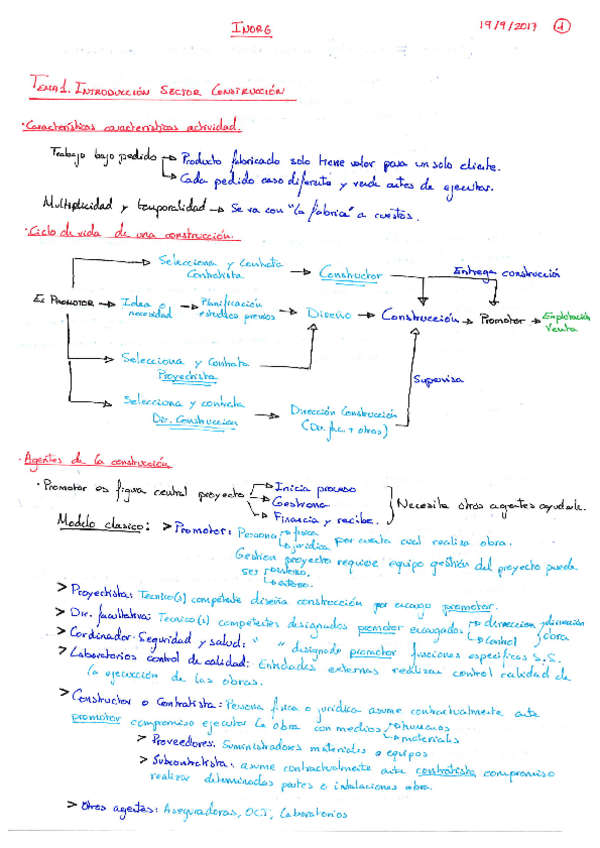 INORG
19/9/2017 1
TEMA 1. INTRODUCCIÓN SECTOR CONSTRUCCIÓN
· Características características actividad.
Trabajo bajo pedido → Producto fabricado solo tiene valor para un solo cliente.
→ Cada pedido caso diferente y vende antes de ejecutar.
Multiplicidad y temporalidad → Se va con "la fabrica" a cuestas.
· Ciclo de vida de una construcción.
Selecciona y Contrata
Contratista → Constructor
Entrega construcción
EL PROMOTOR → Idea o
necesidad → Planificación
estudios previos → Diseño → Construcción → Promotor → Explotación
Venta
Selecciona y Contrata
Proyectista
Supervisa
Selecciona y contrata
Dir. Construccion → Dirección Construcción
(Dir. fac. + otros)
· Agentes de la construcción
· Promotor es figura central proyecto → Inicia proceso
→ Gestiona
→ Financia y recibe.
Necesita otros agentes ayudarle.
Modelo clasico: > Promotor: Persona → fisica
→ jurídica por cuenta cual realiza obra.
Gestion proyecto requiere equipo gestión del proyecto puede
ser → interno.
→ externo.
> Proyectista: Tecnico(s) competente diseña construcción por encargo promotor.
> Dir. facultativa: Tecnico(s) competentes designados promotor encargados → direccion
→ control
dirección
obra
> Cordinador Seguridad y salud: " " designado promotor funciones especificas S.S.
> Laboratorios control de calidad: Entidades externas realizan control calidad de
la ejecucción de las obras.
> Constructor o Contratista: Persona fisica o juridica asume contractualmente ante
promotor compromiso ejecutar la obra con medios → humanos
→ materiales
> Proveedores: Suministradores materiales o equipos
> Subcontratista: asume contractualmente ante contratista compromiso
realizar determinadas partes o instalaciones obra.
> Otros agentes: Aseguradoras, OCT, Laboratorios